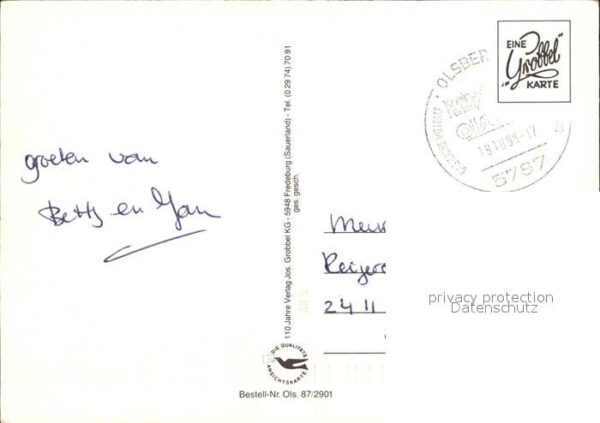 groeten van
Betty en Jan
110 Jahre Verlag Jos. Grobbel KG - 5948 Fredeburg (Sauerland) - Tel. (0 29 74) 70 91
ges. gesch.
DIE QUALITÄTS
ANSICHTSKARTE
Bestell-Nr. Ols. 87/2901
EINE
"Grobbel"
KARTE
OLSBER
5787
2411
privacy protection
Datenschutz